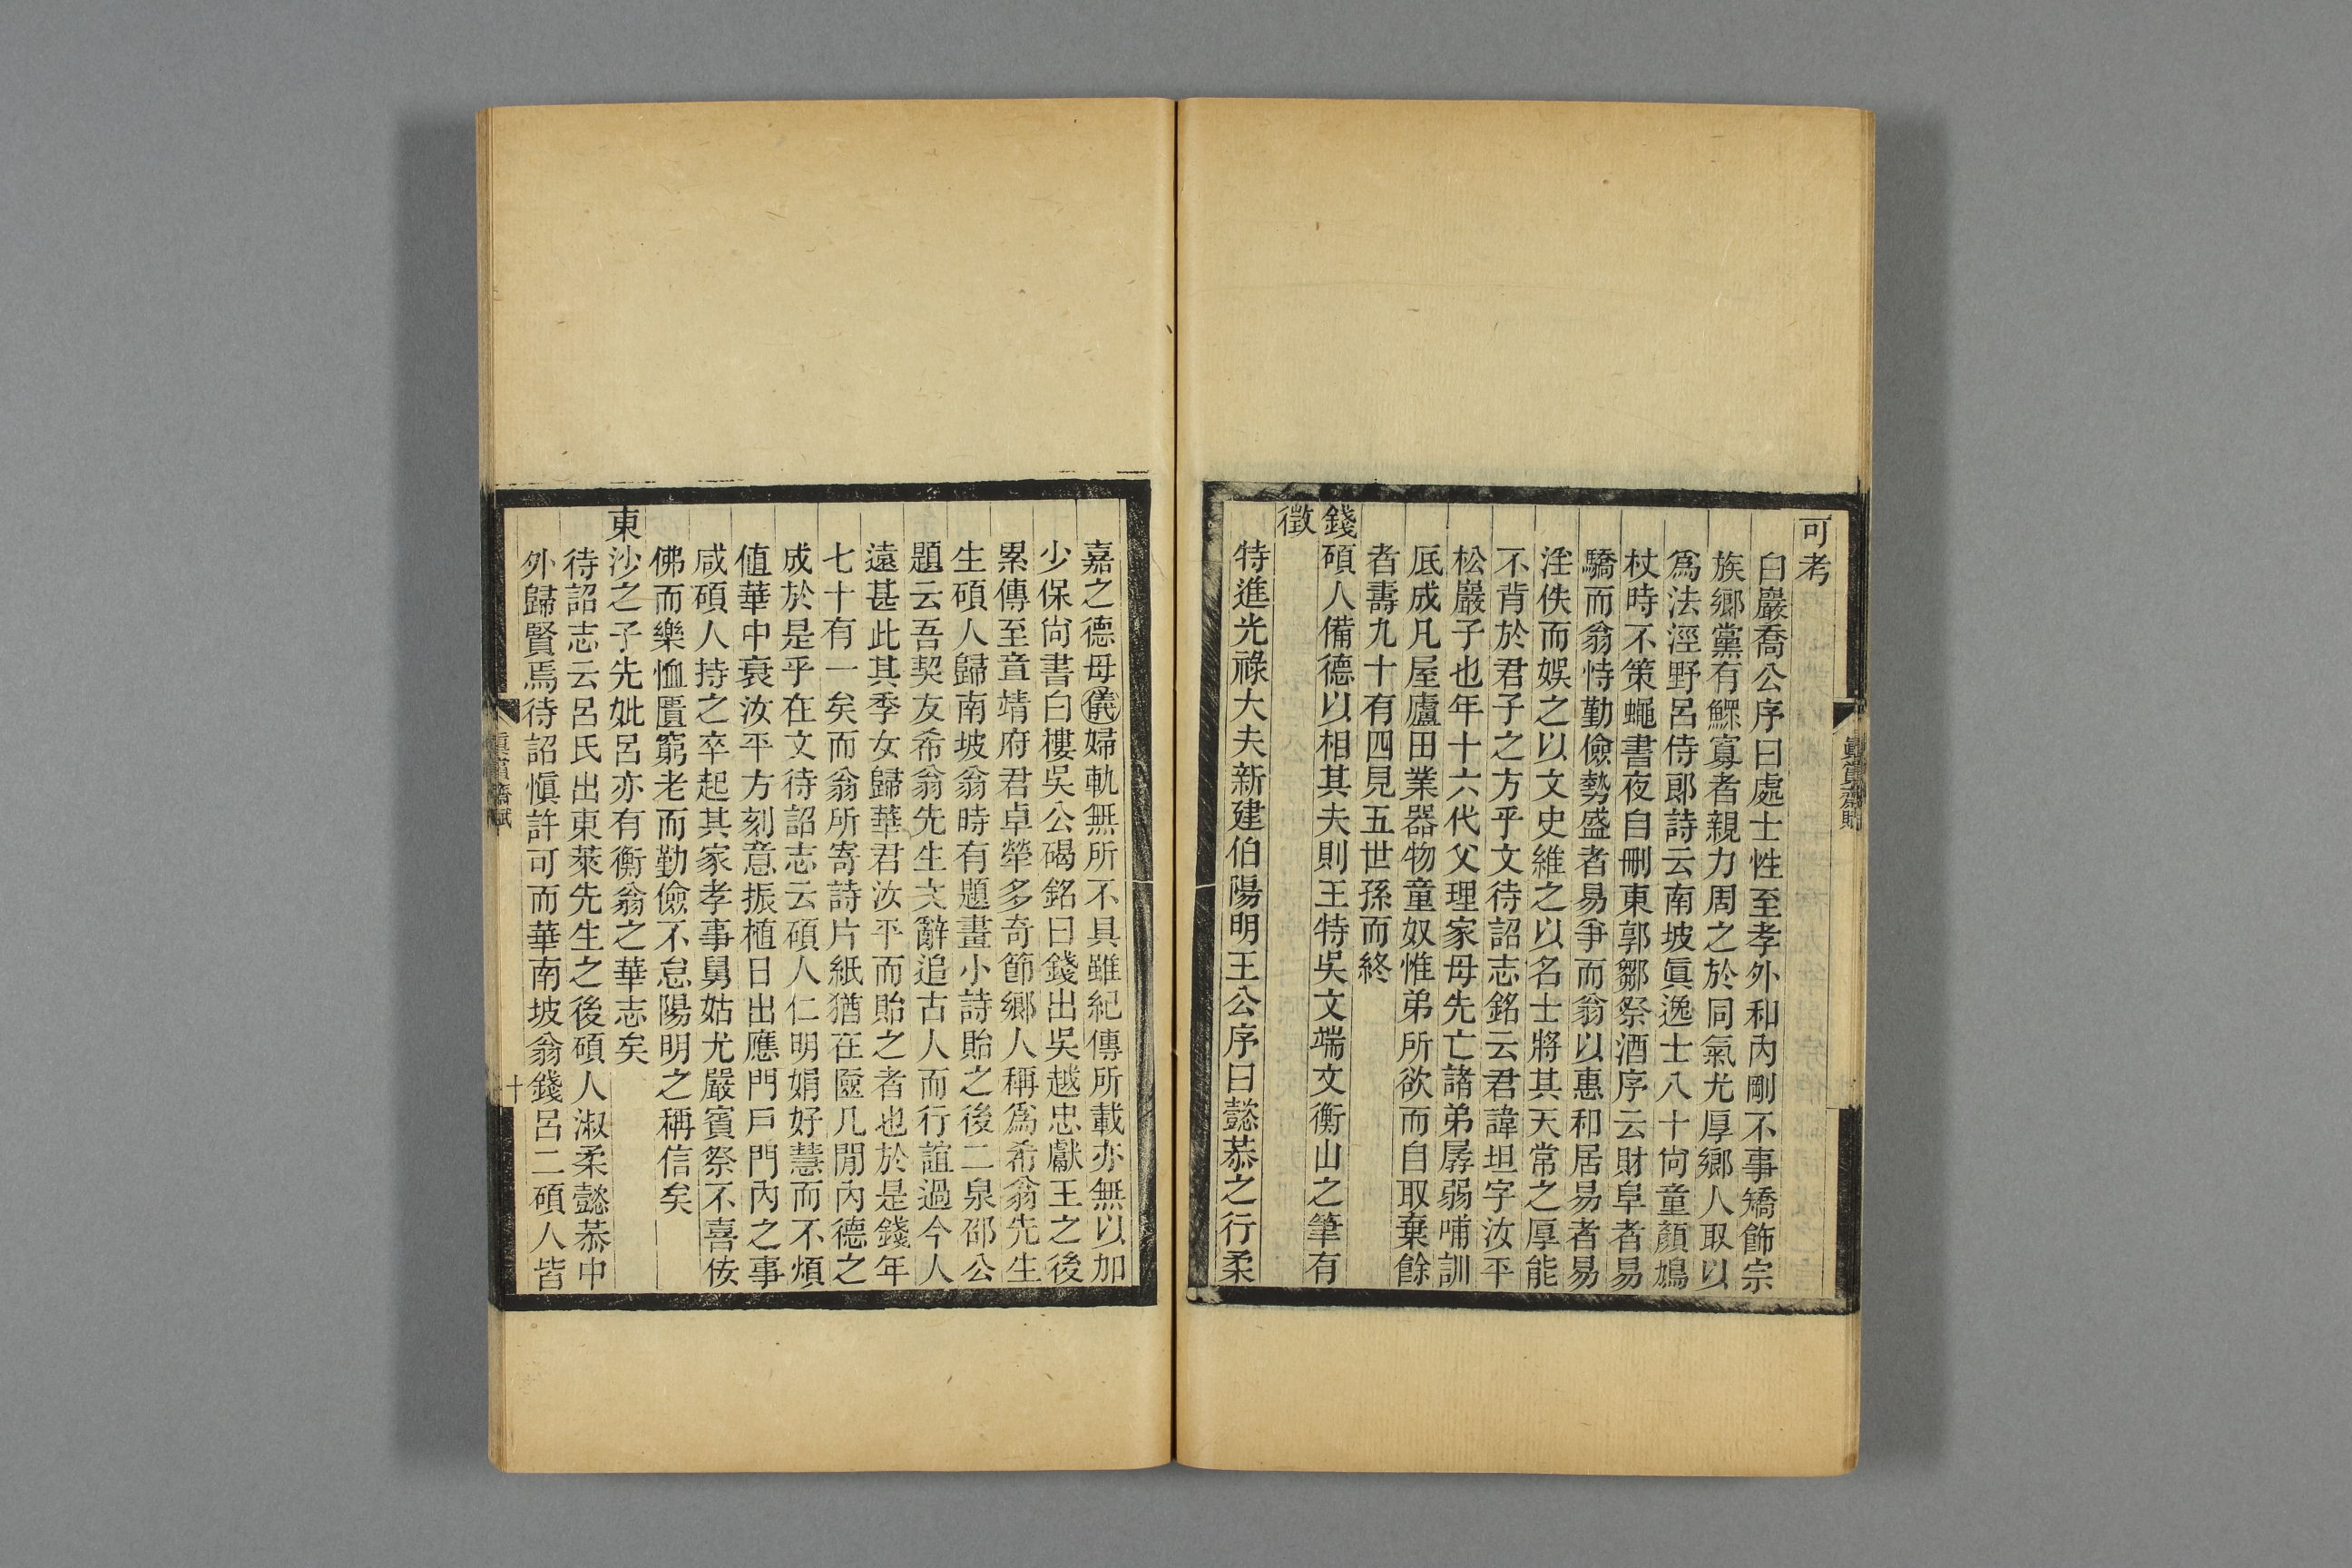 可考
白巖喬公序曰處士性至孝外和內剛不事矯飾宗
族鄉黨有鰥寡者親力周之於同氣尤厚鄉人取以
爲法涇野呂侍郎詩云南坡眞逸士八十尙童顏鳩
杖時不策蠅書夜自刪東郭鄒祭酒序云財阜者易
驕而翁恃勤儉勢盛者易爭而翁以惠和居易者易
淫佚而娛之以文史維之以名士將其天常之厚能
不背於君子之方乎文待詔志銘云君諱坦字汝平
松巖子也年十六代父理家母先亡諸弟孱弱哺訓
厎成凡屋廬田業器物童奴惟弟所欲而自取棄餘
者壽九十有四見五世孫而終
錢碩人備德以相其夫則王特吳文端文衡山之筆有
徵
特進光祿大夫新建伯陽明王公序曰懿恭之行柔
嘉之德母儀婦軌無所不具雖紀傳所載亦無以加
少保尙書白樓吳公碣銘曰錢出吳越忠獻王之後
累傳至音靖府君卓犖多奇節鄉人稱爲希翁先生
生碩人歸南坡翁時有題畫小詩貽之後二泉邵公
題云吾契友希翁先生文辭追古人而行誼過今人
遠甚此其季女歸華君汝平而貽之者也於是錢年
七十有一矣而翁所寄詩片紙猶在匳几閒內德之
成於是乎在文待詔志云碩人仁明娟好慧而不煩
値華中衰汝平方刻意振植日出應門戶門內之事
咸碩人持之卒起其家孝事舅姑尤嚴賓祭不喜佞
佛而樂恤匱窮老而勤儉不怠陽明之稱信矣
東沙之子先妣呂亦有衡翁之華志矣
待詔志云呂氏出東萊先生之後碩人淑柔懿恭中
外歸賢焉待詔愼許可而華南坡翁錢呂二碩人皆
眞賞齋賦
十